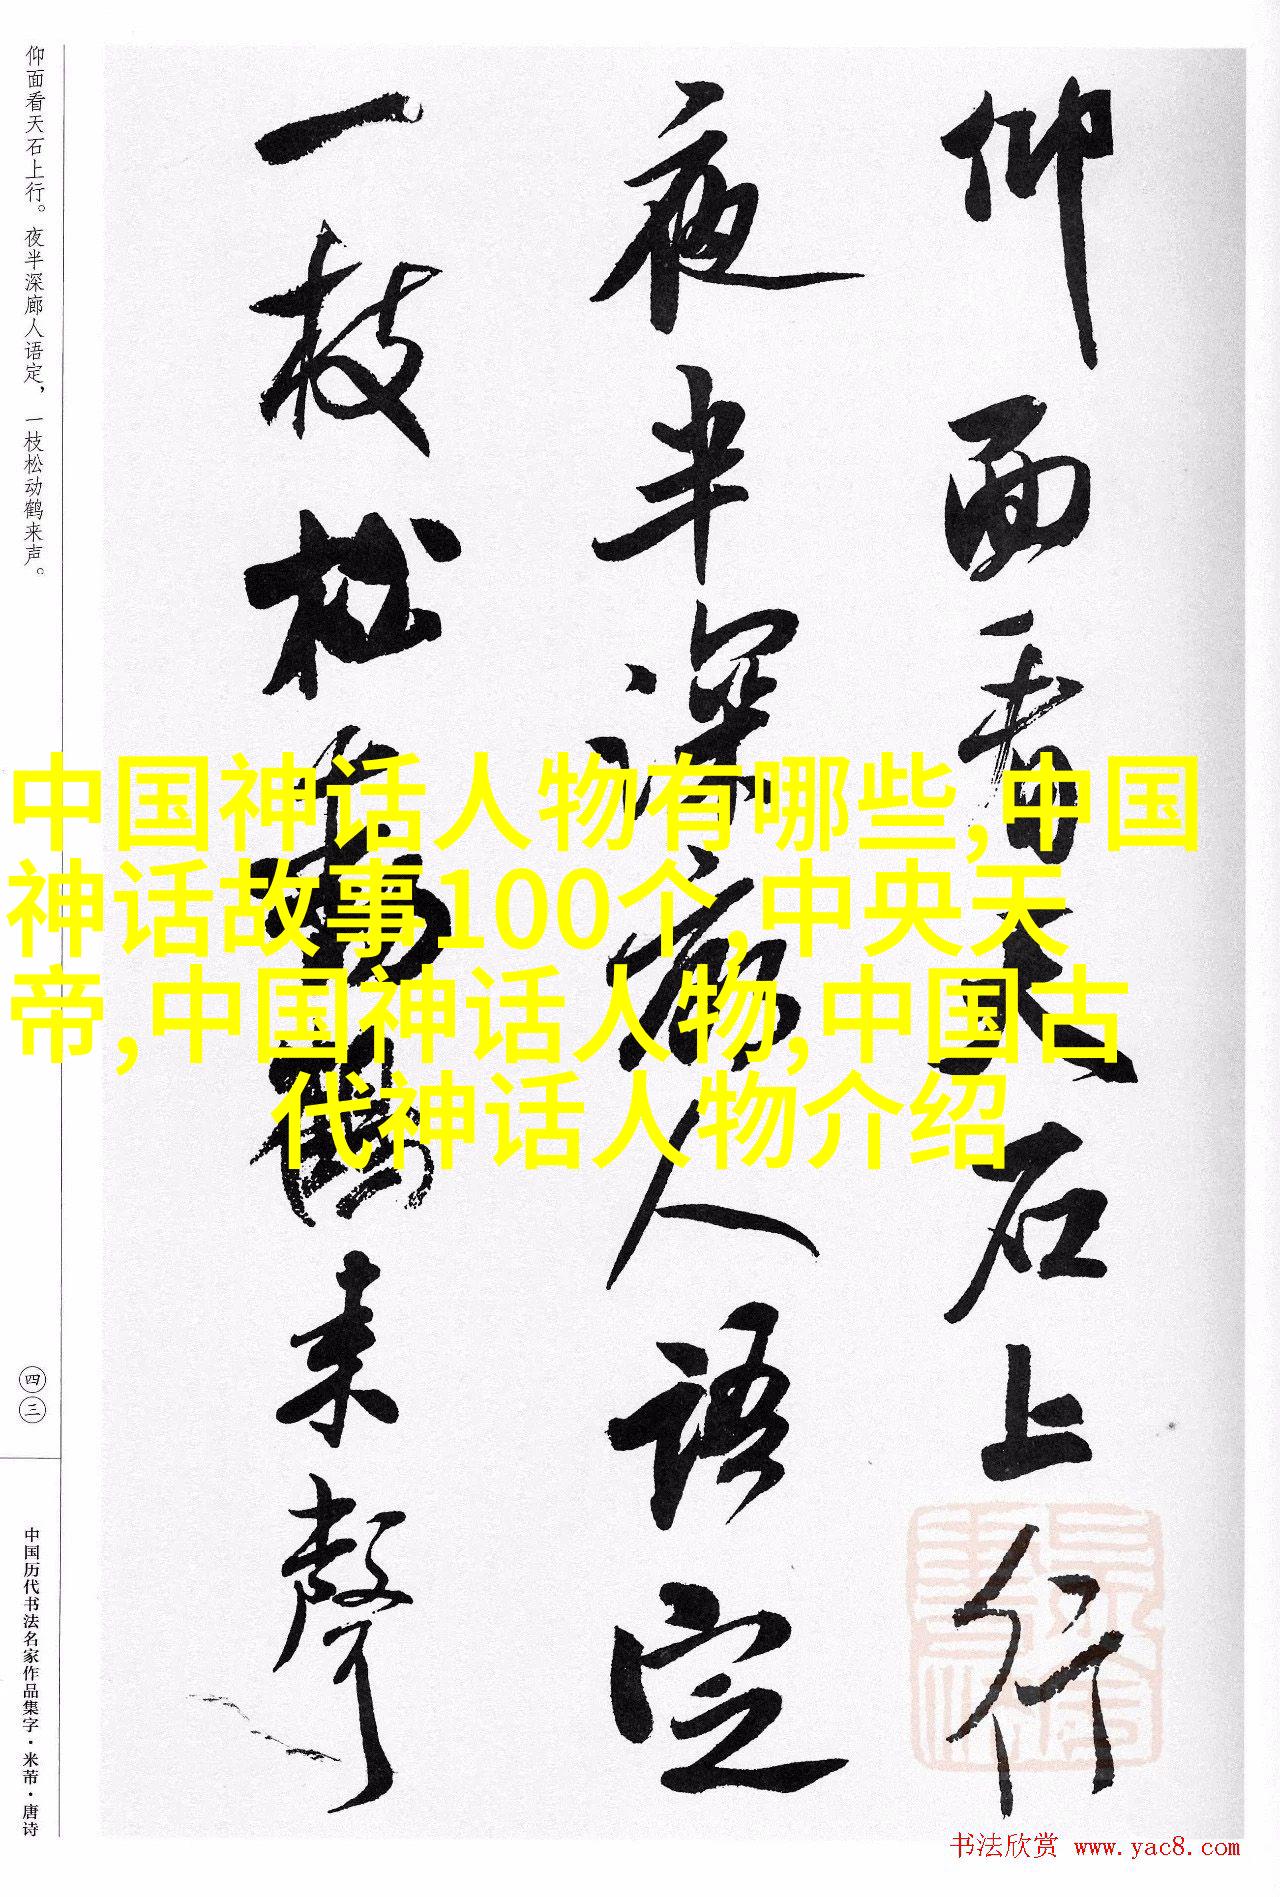 仰面看天石上行
夜半深廊人语定
一枝松動鶴来聲
仰面看天石上行。夜半深廊人语定，一枝松动鹤来声。
四三
中国历代书法名家作品集字·米芾·唐诗
中国神话人物有哪些,中国
神话故事100个,中央天
帝,中国神话人物,中国古
代神话人物介绍
书法欣赏 www.yac8.com